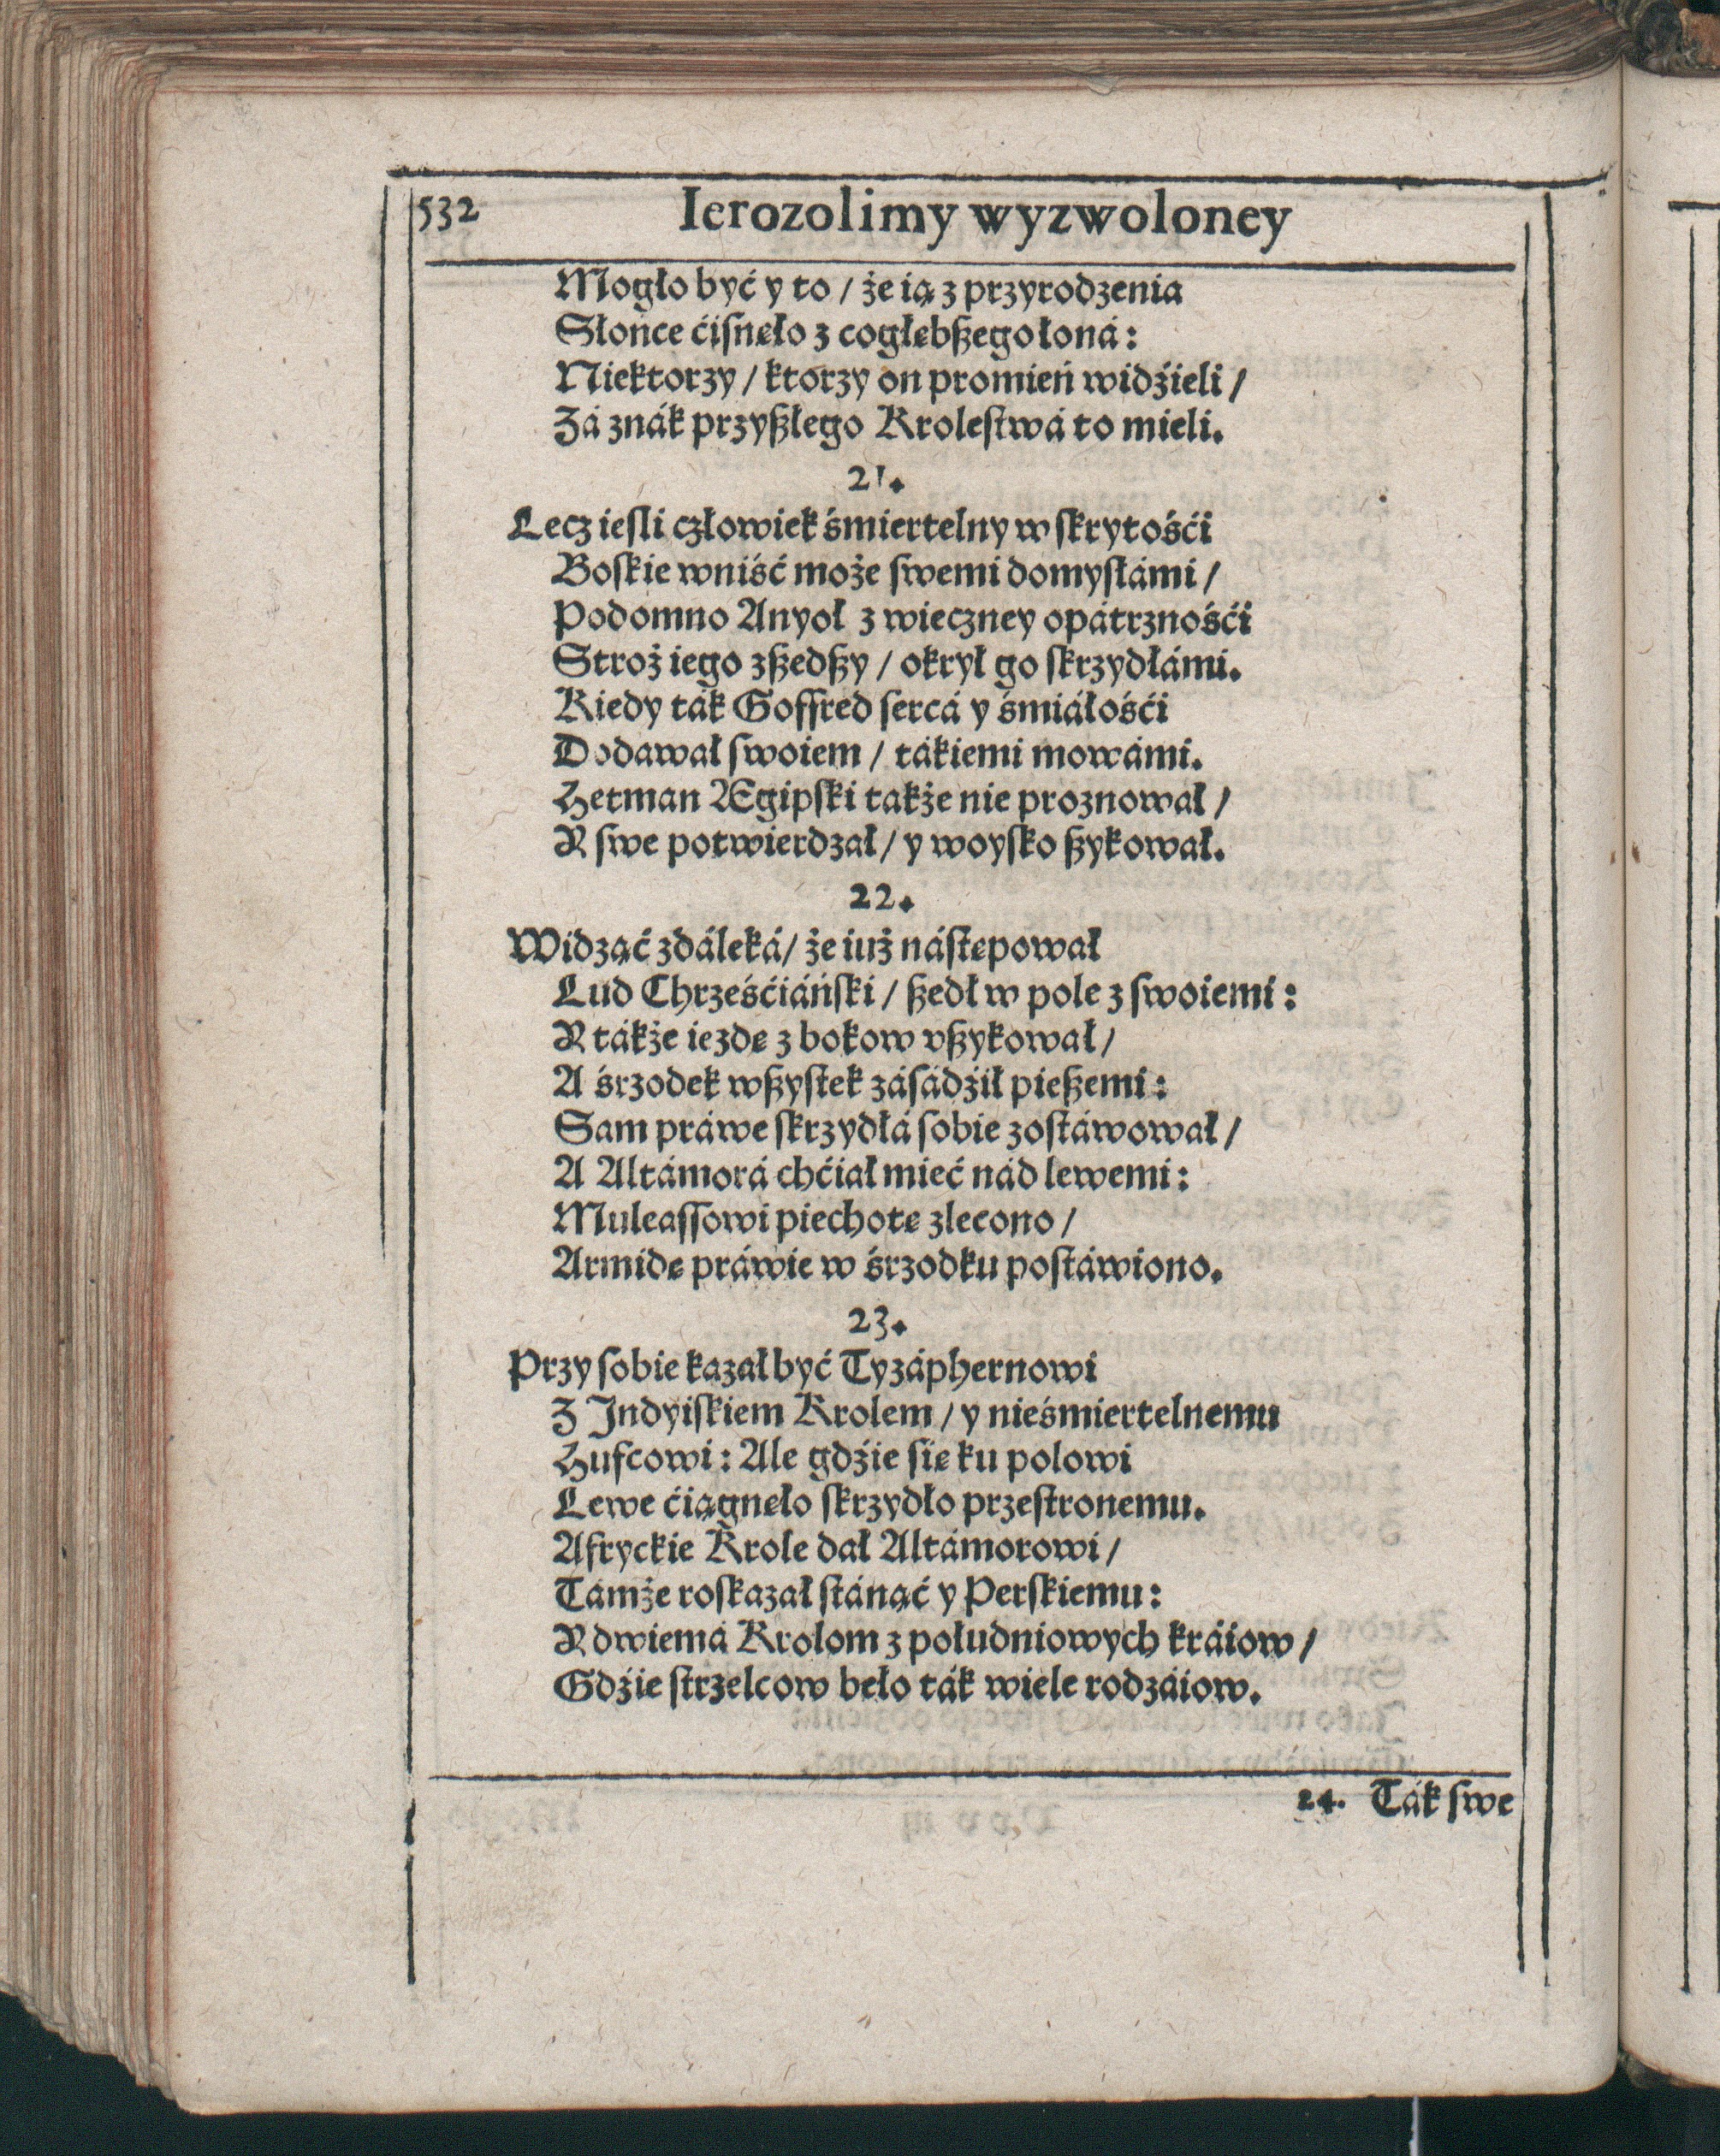 532 Ierozolimy wyzwoloney
Mogło być y to / że ią z przyrodzenia
Słońce ćiſnęło z cogłębßego łoná:
Niektorzy / ktorzy on promień widźieli /
Zá znák przyßłego Kroleſtwá to mieli.
21.
Lecz ieſli człowiek śmiertelny w ſkrytośći
Boſkie wniść może ſwemi domyſłámi /
Podomno Anyoł z wieczney opátrznośći
Stroż iego zßedßy / okrył go ſkrzydłámi.
Kiedy ták Goffred ſercá y śmiáłośći
Dodawał ſwoiem / tákiemi mowámi.
Hetman Ægipſki także nie proznował /
R ſwe potwierdzał / y woyſko ßykował.
22.
Widząć zdáleká / że iuż náſtępował
Lud Chrześćiáńſki / ßedł w pole z ſwoiemi:
R tákże iezdę z bokow vßykował /
A śrzodek wßyſtek záſádźił pießemi:
Sam práwe ſkrzydłá ſobie zoſtáwował /
A Altámorá chćiał mieć nád lewemi:
Muleaſſowi piechotę zlecono /
Armidę práwie w śrzodku poſtáwiono.
23.
Przy ſobie kazał być Tyzáphernowi
Z Indyiſkiem Krolem / y nieśmiertelnemu
Hufcowi: Ale gdźie ſię ku polowi
Lewe ćiągnęło ſkrzydło przeſtronemu.
Afryckie Krole dał Altámorowi /
Támże roſkazał ſtánąć y Perſkiemu:
R dwiemá Krolom z południowych kráiow /
Gdźie ſtrzelcow beło ták wiele rodzáiow.
24. Ták ſwe